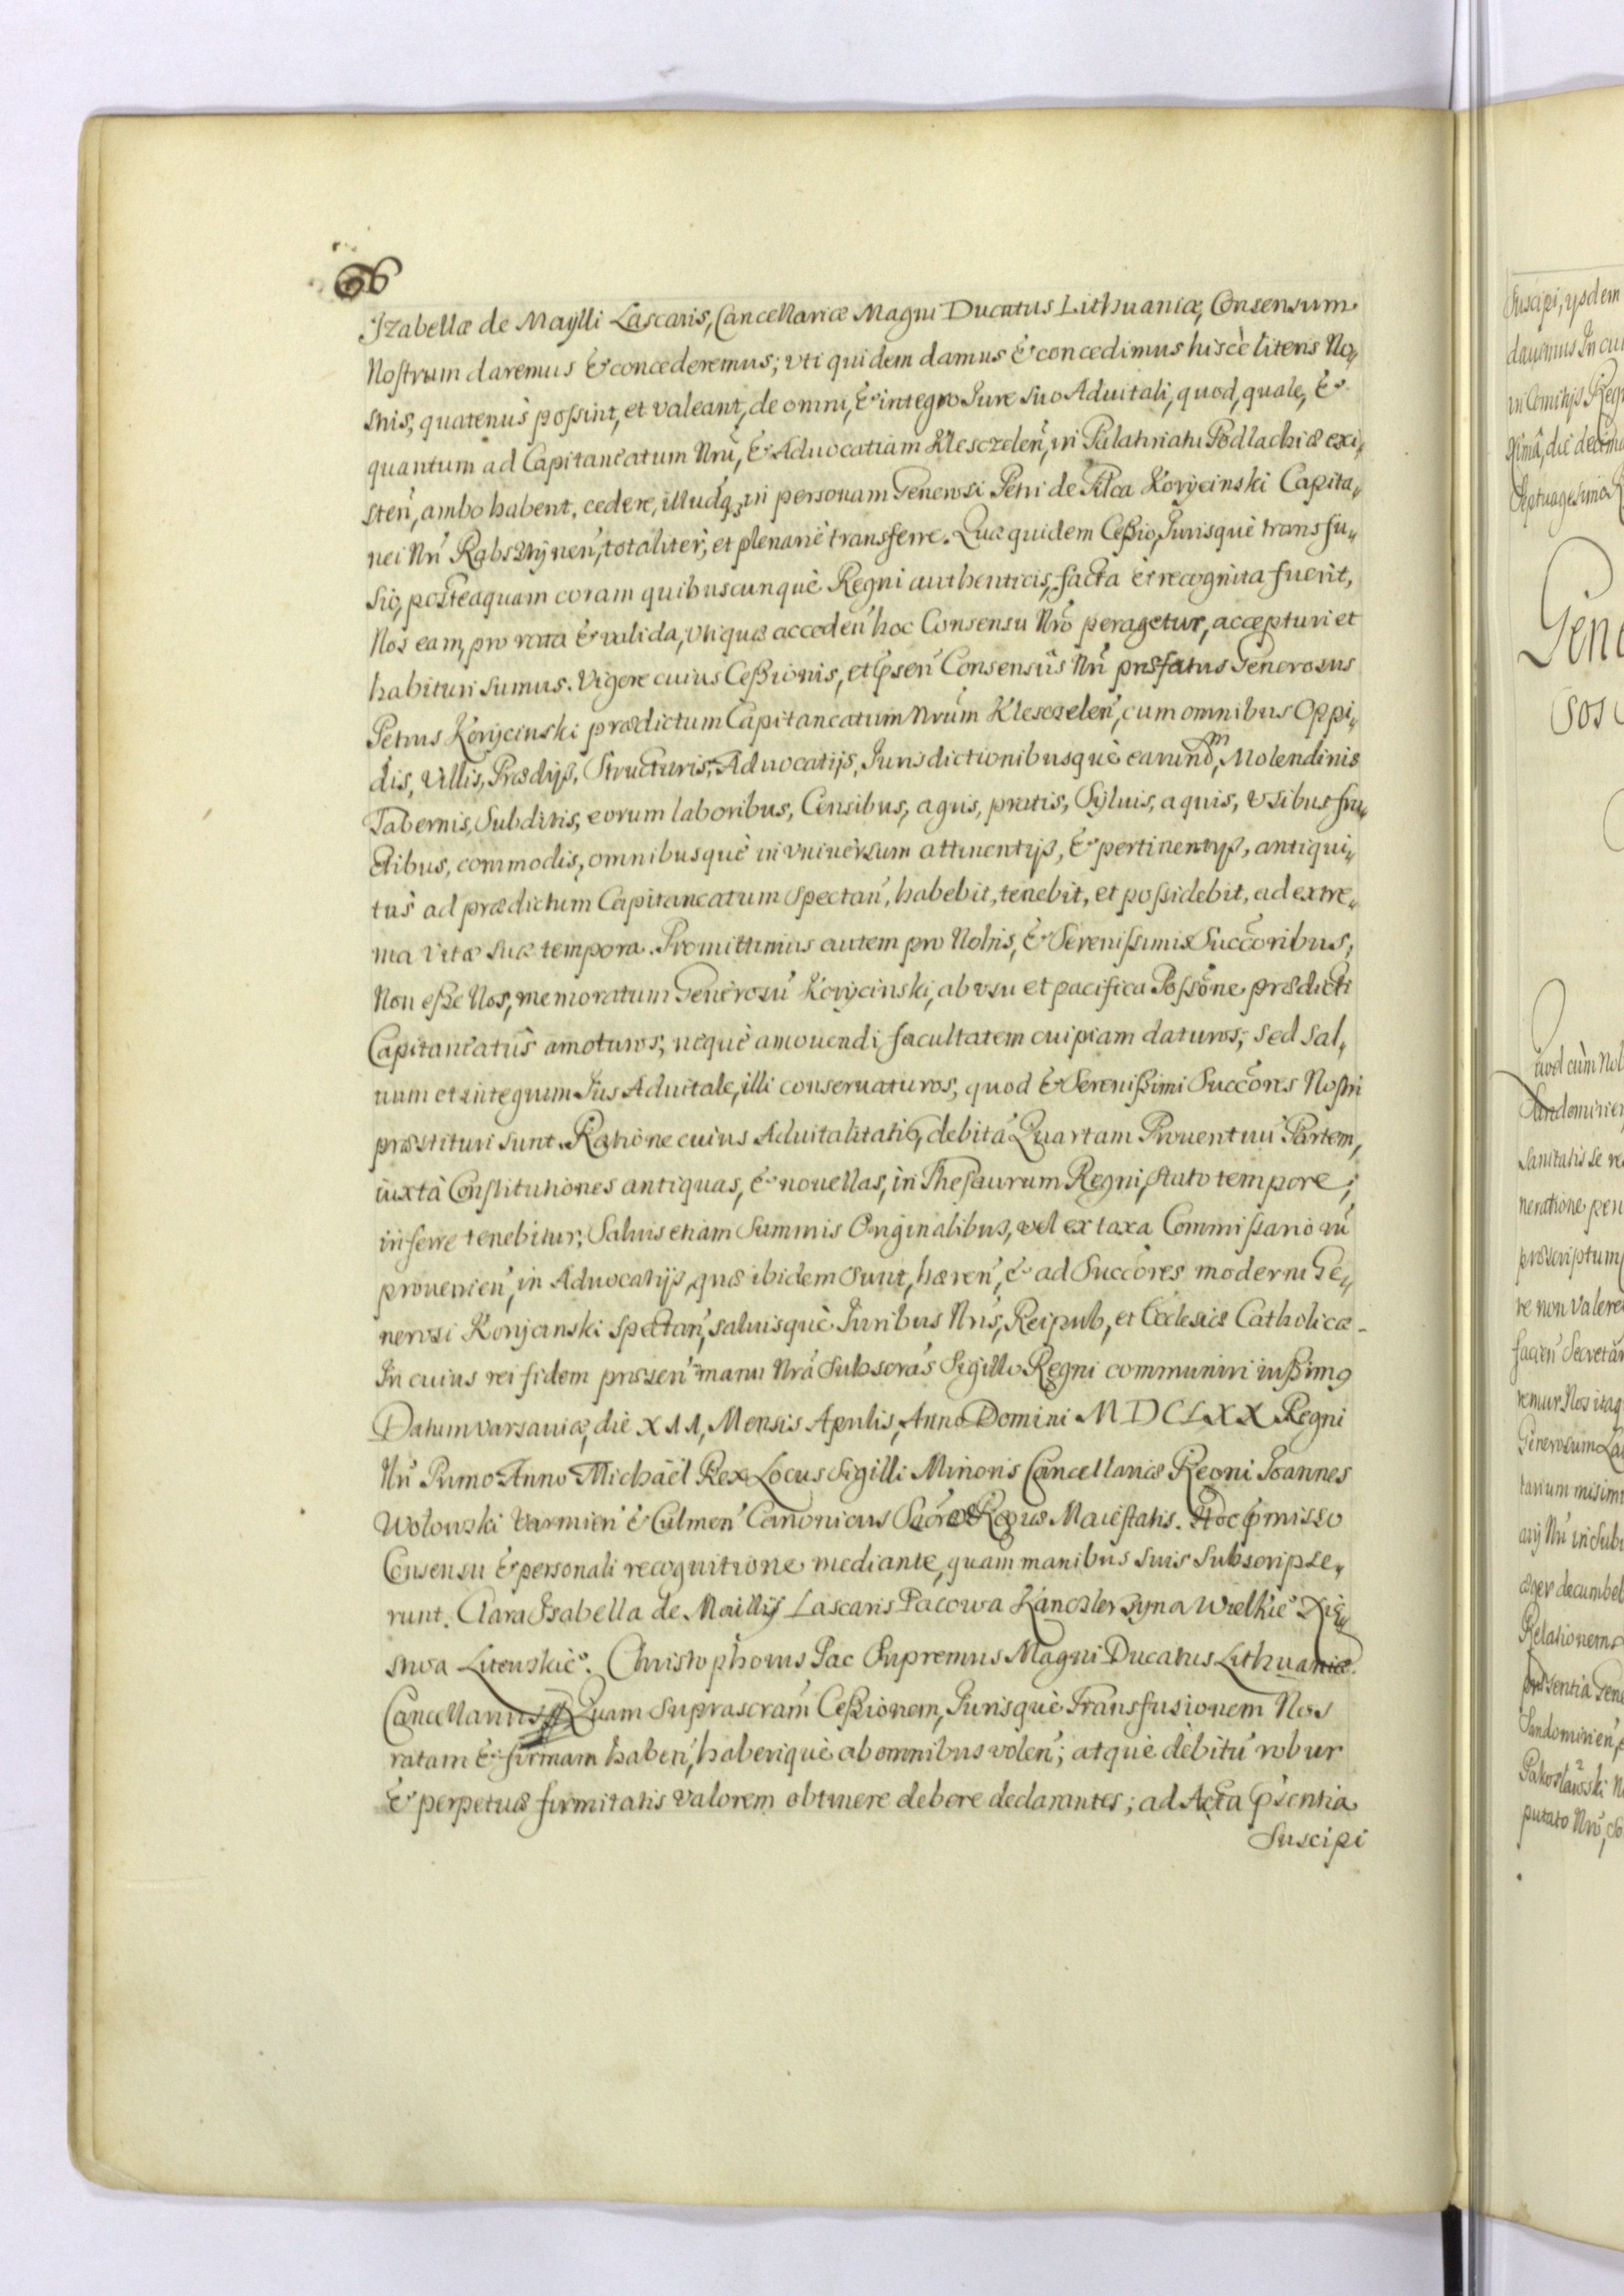 66
Izabellæ de Maylli Lascaris, Cancellariæ Magni Ducatus Lithuaniæ, Consensum
Nostrum daremus & concederemus; vti quidem damus & concedimus hiscè literis No„
stris, quatenus possint, et valeant, de omni, & integro Iure suo Aduitali, quod, quale, &
quantum ad Capitaneatum Nrũ, & Aduocatiam Klesczelen̄, in Palatinatu Podlachiæ exi„
sten̄, ambo habent, cedere, illudq₃ in personam Generosi Petri de Pilca Korycinski Capita„
nei Nri Rabsztynen̄, totaliter, et plenariè transferre. Quæ quidem Cessio, Iurisquè transfu„
sio, posteaquam coram quibuscunquè Regni authenticis, facta et recognita fuerit,
Nos eam, pro rata & valida, vtiquæ acceden̄ hoc Consensu Nrõ peragetur, accepturi et
habituri sumus. Vigore cuius Cessionis, et p̃sen̄ Consensûs Nri præfatus Generosus
Petrus Korycinski prædictum Capitaneatum Nrũm Klesczelen̄, cum omnibus Oppi„
dis, Villis, Prædijs, Structuris, Aduocatijs, Iurisdictionibusquè earund̃m, Molendinis
Tabernis, Subditis, eorum laboribus, Censibus, agris, pratis, Syluis, aquis, vsibus fru„
ctibus, commodis, omnibusquè in vniuersum attinentijs, & pertinentijs, antiqui„
tus ad prædictum Capitaneatum Spectan̄, habebit, tenebit, et possidebit, ad extre„
ma vitæ suæ tempora. Promittimus autem pro Nobis, & Serenissimis Succõribus,
Non esse Nos, memoratum Generosũ Korycinski, ab vsu et pacifica Possõne prædicti
Capitaneatûs amoturos, nequè amouendi facultatem cuipiam daturos; sed sal„
uum et integrum Ius Aduitale, illi conseruaturos, quod & Serenissimi Succõres Nostri
præstituri sunt. Ratione cuius Aduitalitatis, debitã Quartam Prouentuũ Partem,
iuxtà Constitutiones antiquas, & nouellas, in Thesaurum Regni, stato tempore,
inferre tenebitur; Saluis etiam Summis Originalibus, vel ex taxa Commissariorũ
prouenien̄, in Aduocatijs, quæ ibidem sunt, hæren̄, & ad Succõres moderni Ge„
nerosi Korycinski Spectan̄, saluisquè Iuribus Nris, Reipub, et Ecclesiæ Catholicæ
In cuius rei fidem præsen̄ manu Nrã Subscrãs Sigillo Regni communiri iussimꝰ
Datum Varsauiæ, die XII, Mensis Aprilis, Anno Domini MDCLXX Regni
Nri Primo Anno Michaël Rex Locus Sigilli Minoris Cancellariæ Regni Ioannes
Wołowski Varmien̄ & Culmen̄ Canonicus Sacræ Regiæ Maiestatis. Hoc p̃misso
Consensu & personali recognitione mediante, quam manibus suis subscripse„
runt. Clara Isabella de Maillij Lascaris Pacowa Kanclerzyna Wielkieº Xię„
stwa Litewskieº. Christophorus Pac Supremus Magni Ducatus Lithuaniæ
Cancellarius Quam suprascrãm Cessionem, Iurisquè Transfusionem Nos
ratam & firmam haben̄, haberiquè ab omnibus volen̄; atquè debitũ robur
& perpetuæ firmitatis valorem obtinere debere declarantes; ad Acta p̃sentia
Suscipi